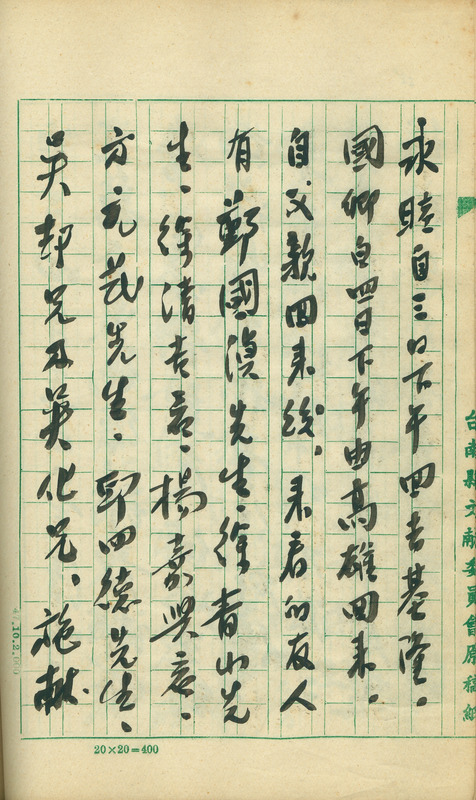 台南縣文献委員會原稿紙
永睦自三日下午回去基隆。
國卿自四日下午由高雄回來。
自父親回來後、來看的友人
有鄭國湞先生、徐青山先
生、徐清吉君、楊嘉興君、
方元茂先生、邱四德先生、
吳却兄及英化兄、施献
20×20=400